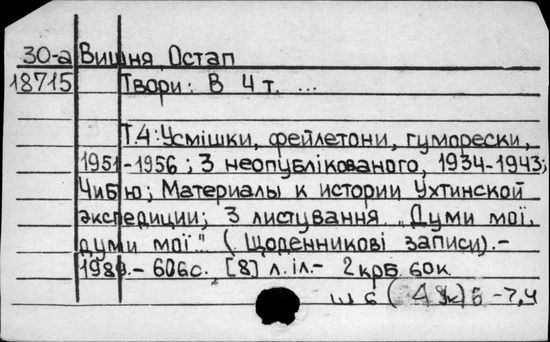 30-а Вишня Остап
18715 Твори: В 4 т. ...
Т.4: Усмішки, фейлетони, гуморески,
1951-1956; З неопублікованого, 1934-1943;
Чибю; Материалы к истории Ухтинской
экспедиции; З листування „Думи мої,
думи мої." (Щоденникові записи).-
1989.- 606с. [8] л. іл.- 2 крб 60к